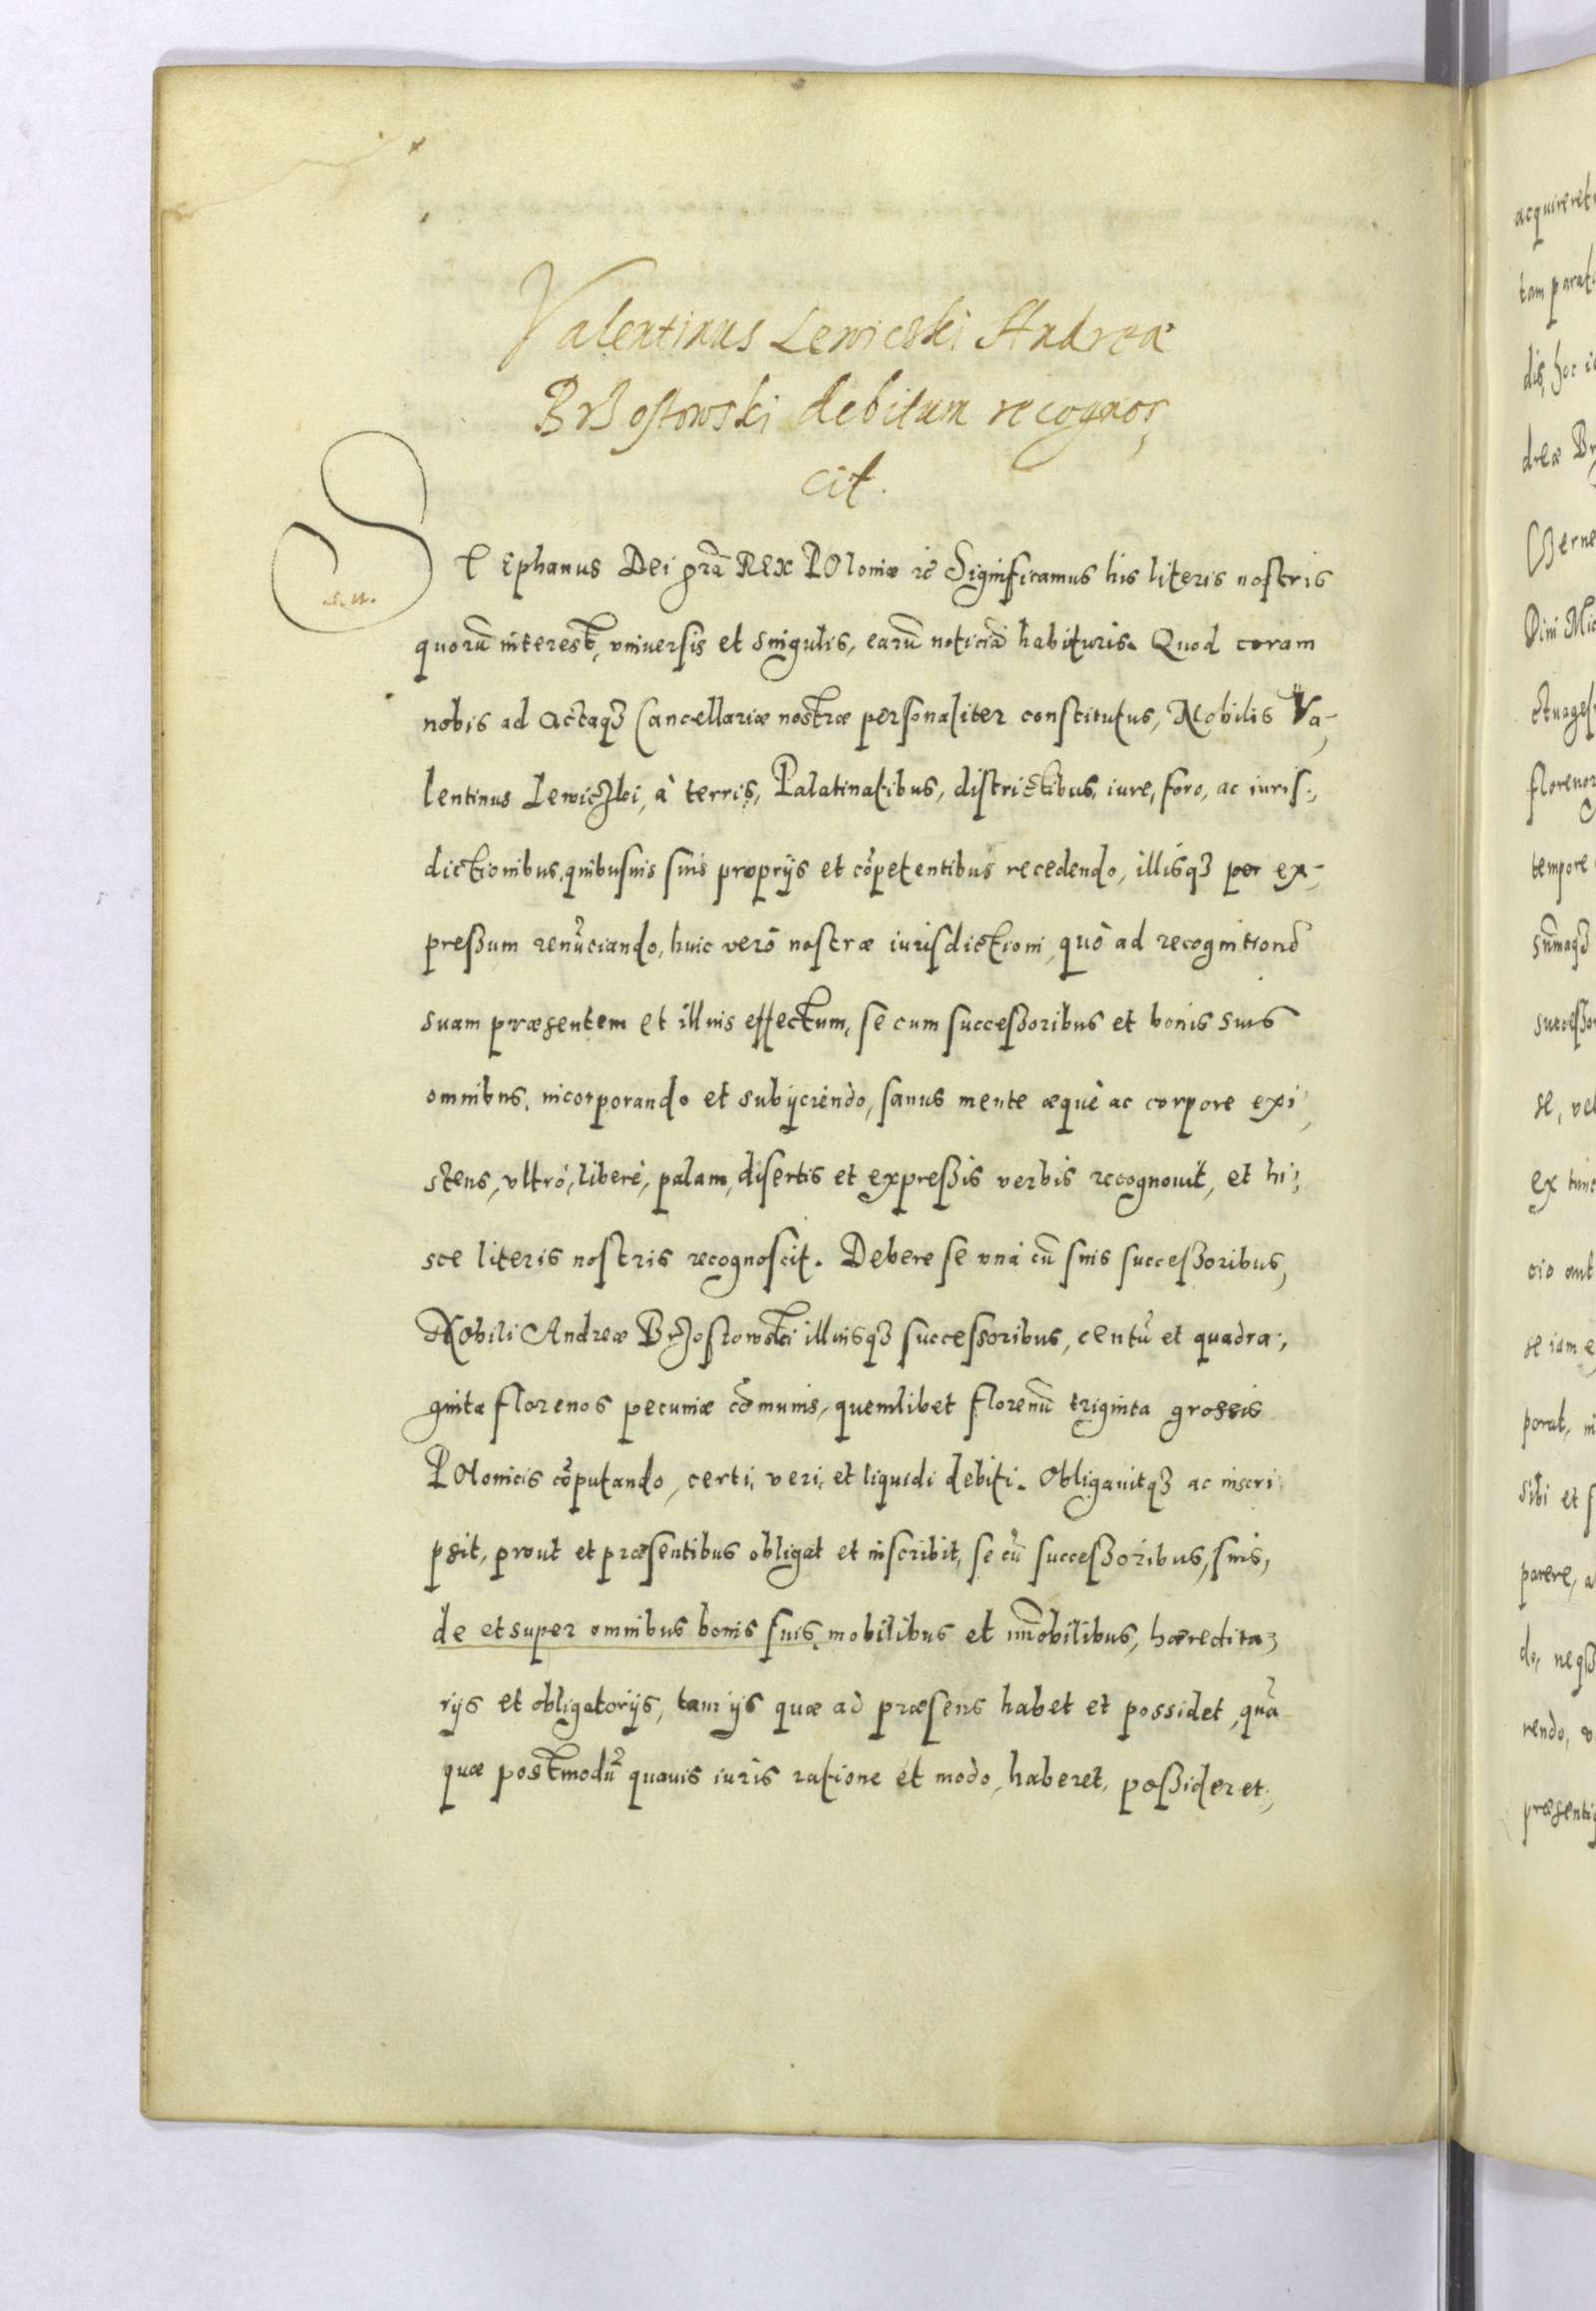 Valentinus Lewiczki Andreæ
Brzostowski debitum recognos,
cit.
STephanus Dei grã Rex Poloniæ rc̃ Significamus his literis nostris
quorũ interest, vniuersis et singulis, earũ noticiã habituris. Quod coram
nobis ad Actaqȝ Cancellariæ nostræ personaliter constitutus, Nobilis Va-
lentinus Lewiczki, à terris, Palatinatibus, districtibus, iure, foro, ac iuris:,
dictionibus, quibusuis suis proprijs et cõpetentibus recedendo, illisqȝ per ex-
preßum renũciando, huic verò nostræ iurisdictioni, quò ad recognitionẽ
suam præsentem et illius effectum, se cum succeßoribus et bonis suis
omnibus, incorporando et subijciendo, sanus mente æquè ac corpore exi,
stens, vltrò, liberè, palam, disertis et expreßis verbis recognouit, et hi:,
sce literis nostris recognoscit. Debere se vnà cũ suis succeßoribus,
Nobili Andreæ Brzostowski illiusqȝ successoribus, centũ et quadra:,
ginta florenos pecuniæ cõmunis, quemlibet florenũ triginta grossis
Polonicis cõputando, certi, veri, et liquidi debiti. Obligauitqȝ ac inscri
psit, prout et præsentibus obligat et inscribit, se cũ succeßoribus, suis,
de et super omnibus bonis suis, mobilibus et im̃obilibus, hæredita,
rijs et obligatorijs, tam ijs quæ ad præsens habet et possidet, quã
quæ postmodũ quauis iuris ratione et modo, haberet, poßideret,
S. n.
acquireret
tam parat
dis, hoc
dreæ Br
Czerne
Dini Mic
ctuages
floreno
tempore
sum̃aqȝ
succeßo
se, vel
ex tunc
cio aut
se iam e
porat, in
sibi et s
parere, a
do, neqȝ
rendo, v
præsenti